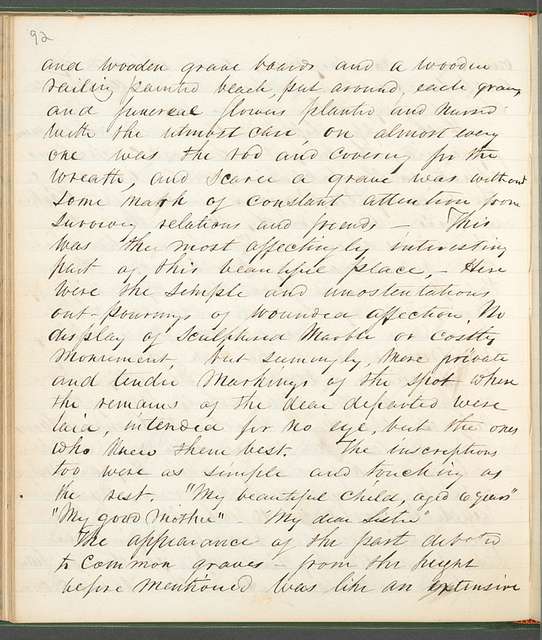 92
and wooden grave boards and a wooden
railing painted black, put around, each grave
and funereal flowers planted and nursed
with the utmost care on almost every
one was the rod and covering for the
wreath, and scarce a grave was without
some mark of constant attention from
surviving relations and friends — This
was the most affectingly interesting
part of this beautiful place, — Here
were the simple and unostentatious
out-pourings of wounded affection, No
display of Sculptured Marble or costly
Monument, but seemingly, more private
and tender markings of the spot where
the remains of the dear departed were
laid, intended for no eye, but the ones
who knew them best. The inscriptions
too were as simple and touching as
the rest. "My beautiful Child, aged 10 years"
"My good Mother" — "My dear Sister"
The appearance of the part devoted
to common graves — from the height
before mentioned was like an extensive